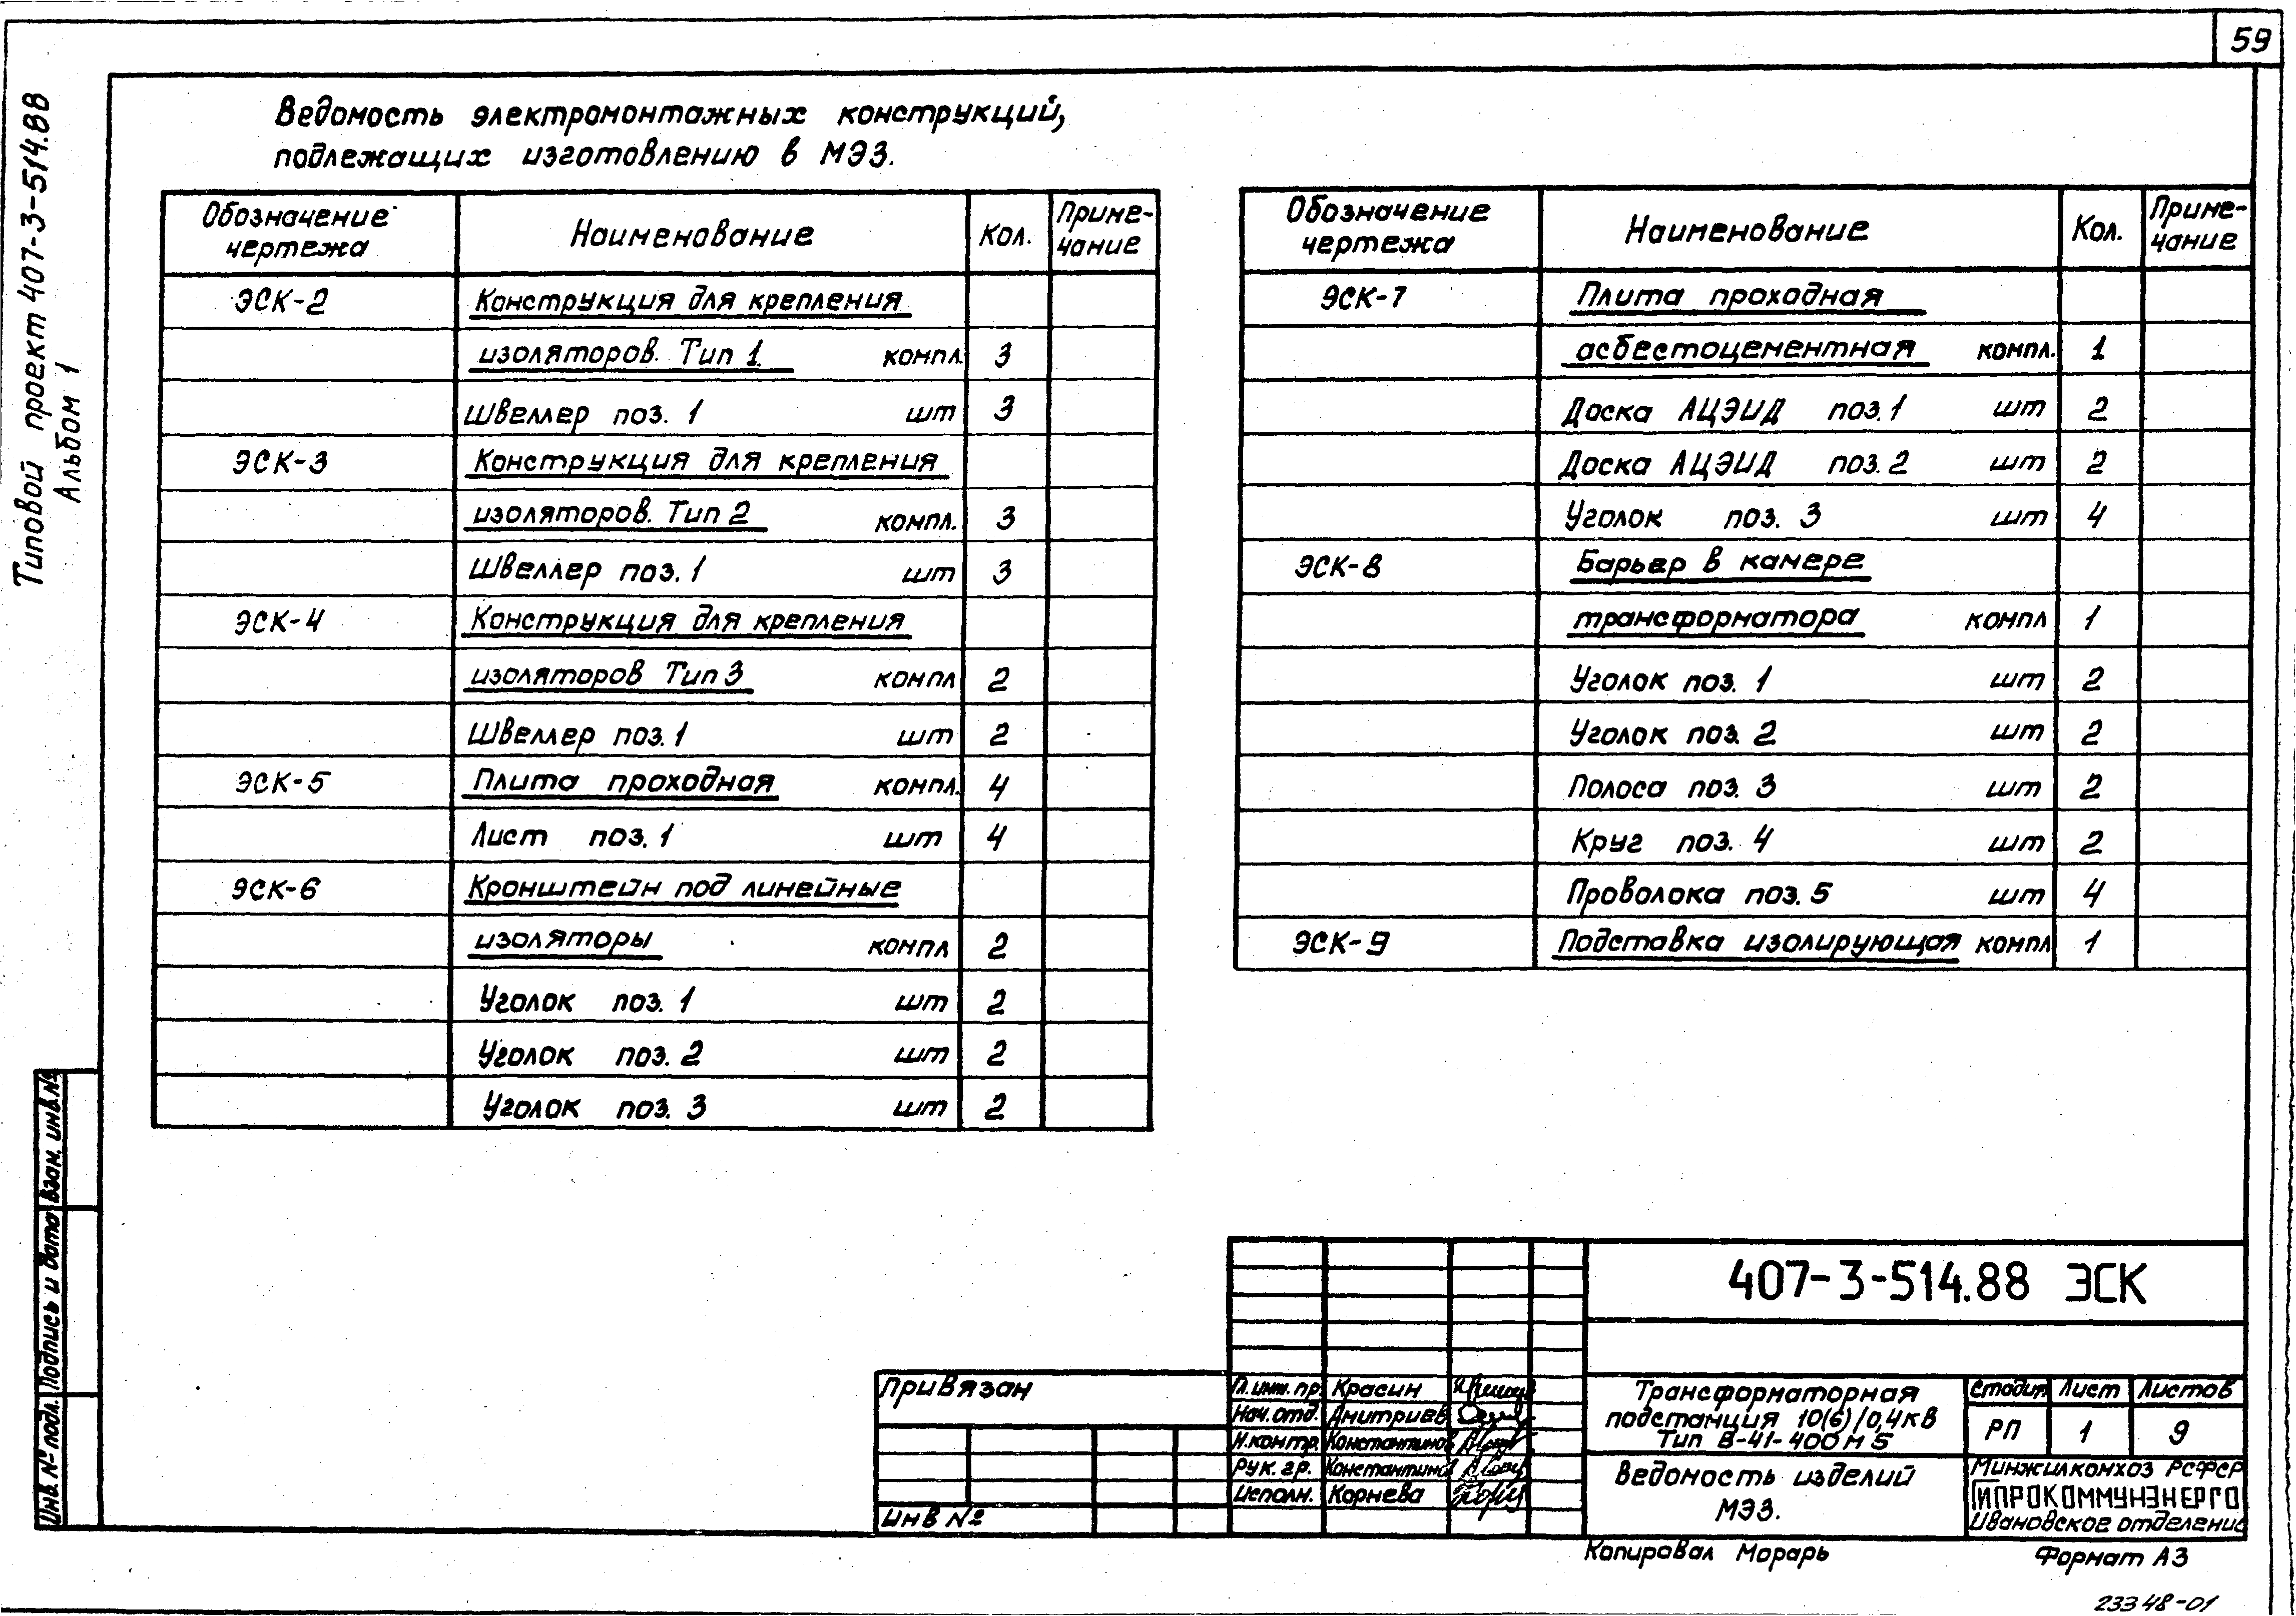 59
Типовой проект 407-3-514.88
Альбом 1
Ведомость электромонтажных конструкций,
подлежащих изготовлению в МЭЗ.
Обозначение чертежа Наименование Кол. Приме-чание
ЭСК-2 Конструкция для крепления
изоляторов. Тип 1. компл. 3
Швеллер поз. 1 шт 3
ЭСК-3 Конструкция для крепления
изоляторов. Тип 2 компл. 3
Швеллер поз. 1 шт 3
ЭСК-4 Конструкция для крепления
изоляторов Тип 3 компл 2
Швеллер поз. 1 шт 2
ЭСК-5 Плита проходная компл. 4
Лист поз. 1 шт 4
ЭСК-6 Кронштейн под линейные
изоляторы компл 2
Уголок поз. 1 шт 2
Уголок поз. 2 шт 2
Уголок поз. 3 шт 2
Обозначение чертежа Наименование Кол. Приме-чание
ЭСК-7 Плита проходная
асбестоцементная компл. 1
Доска АЦЭИД поз. 1 шт 2
Доска АЦЭИД поз. 2 шт 2
Уголок поз. 3 шт 4
ЭСК-8 Барьер в камере
трансформатора компл 1
Уголок поз. 1 шт 2
Уголок поз. 2 шт 2
Полоса поз. 3 шт 2
Круг поз. 4 шт 2
Проволока поз. 5 шт 4
ЭСК-9 Подставка изолирующая компл 1
Взам. инв.№
Подпись и дата
Инв. № подл.
Привязан
Инв №
Гл. инж. пр. Красин
Нач. отд. Дмитриев
Н. контр. Константинов
Рук. гр. Константинов
Исполн. Корнева
407-3-514.88 ЭСК
Трансформаторная
подстанция 10(6)/0,4кв
Тип В-41-400М5
Стадия Лист Листов
РП 1 9
Ведомость изделий
МЭЗ.
Минжилкомхоз РСФСР
ГИПРОКОММУНЭНЕРГО
Ивановское отделение
Копировал Морарь
Формат А3
23348-01